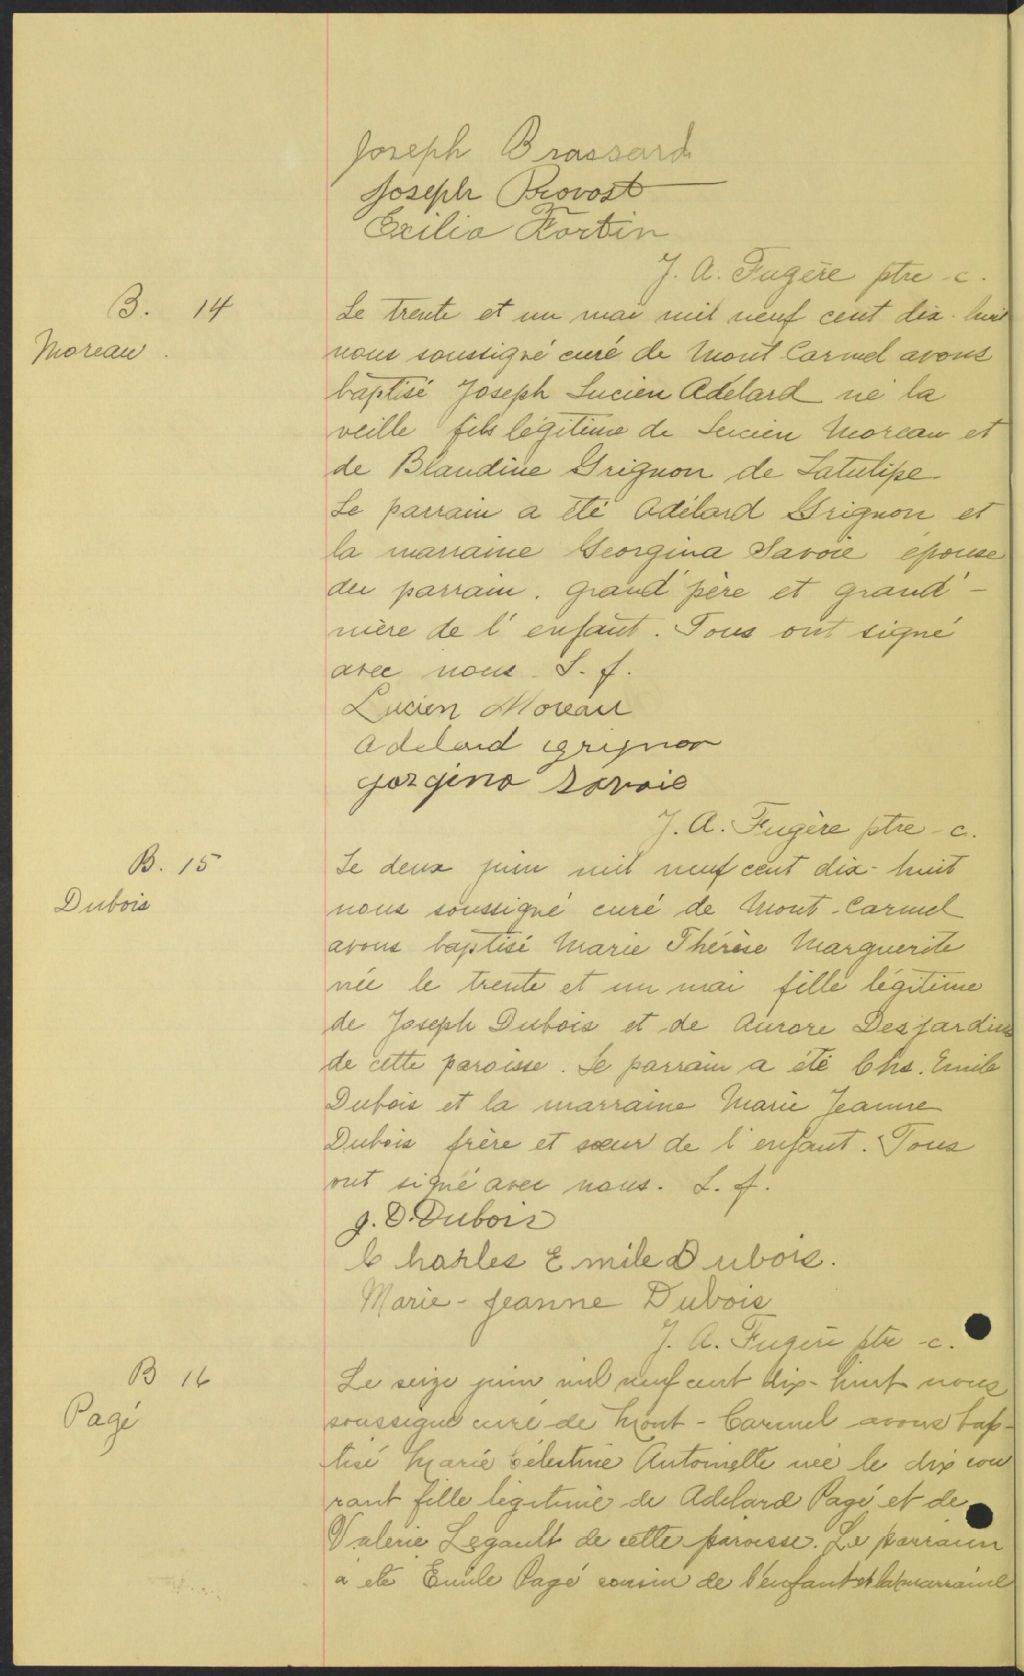 Joseph Brassard
Joseph Provost
Exilia Fortin
J. A. Fugère ptre - c.
B. 14
Moreau.
Le trente et un mai mil neuf cent dix-huit
nous soussigné curé de Mont Carmel avons
baptisé Joseph Lucien Adélard né la
veille fils légitime de Lucien Moreau et
de Blandine Grignon de Latulipe
Le parrain a été Adélard Grignon et
la marraine Georgina Savoie épouse
du parrain. grand'père et grand'-
mère de l'enfant. Tous ont signé
avec nous. L. f.
Lucien Moreau
adelard grignon
gorgina Savoie
J. A. Fugère ptre - c.
B. 15
Dubois
Le deux juin mil neuf cent dix-huit
nous soussigné curé de Mont-Carmel
avons baptisé Marie Thérèse Marguerite
née le trente et un mai fille légitime
de Joseph Dubois et de Aurore Desjardins
de cette paroisse. Le parrain a été Chs. Emile
Dubois et la marraine Marie Jeanne
Dubois frère et sœur de l'enfant. Tous
ont signé avec nous. L. f.
J. D. Dubois
Charles Emile Dubois.
Marie-Jeanne Dubois
J. A. Fugère ptre - c.
B 16
Pagé
Le seize juin mil neuf cent dix-huit nous
soussigné curé de Mont-Carmel avons bap-
tisé Marie Célestine Antoinette née le dix cou
rant fille légitime de Adelard Pagé et de
Valérie Legault de cette paroisse. Le parrain
a été Emile Pagé cousin de l'enfant et la marraine